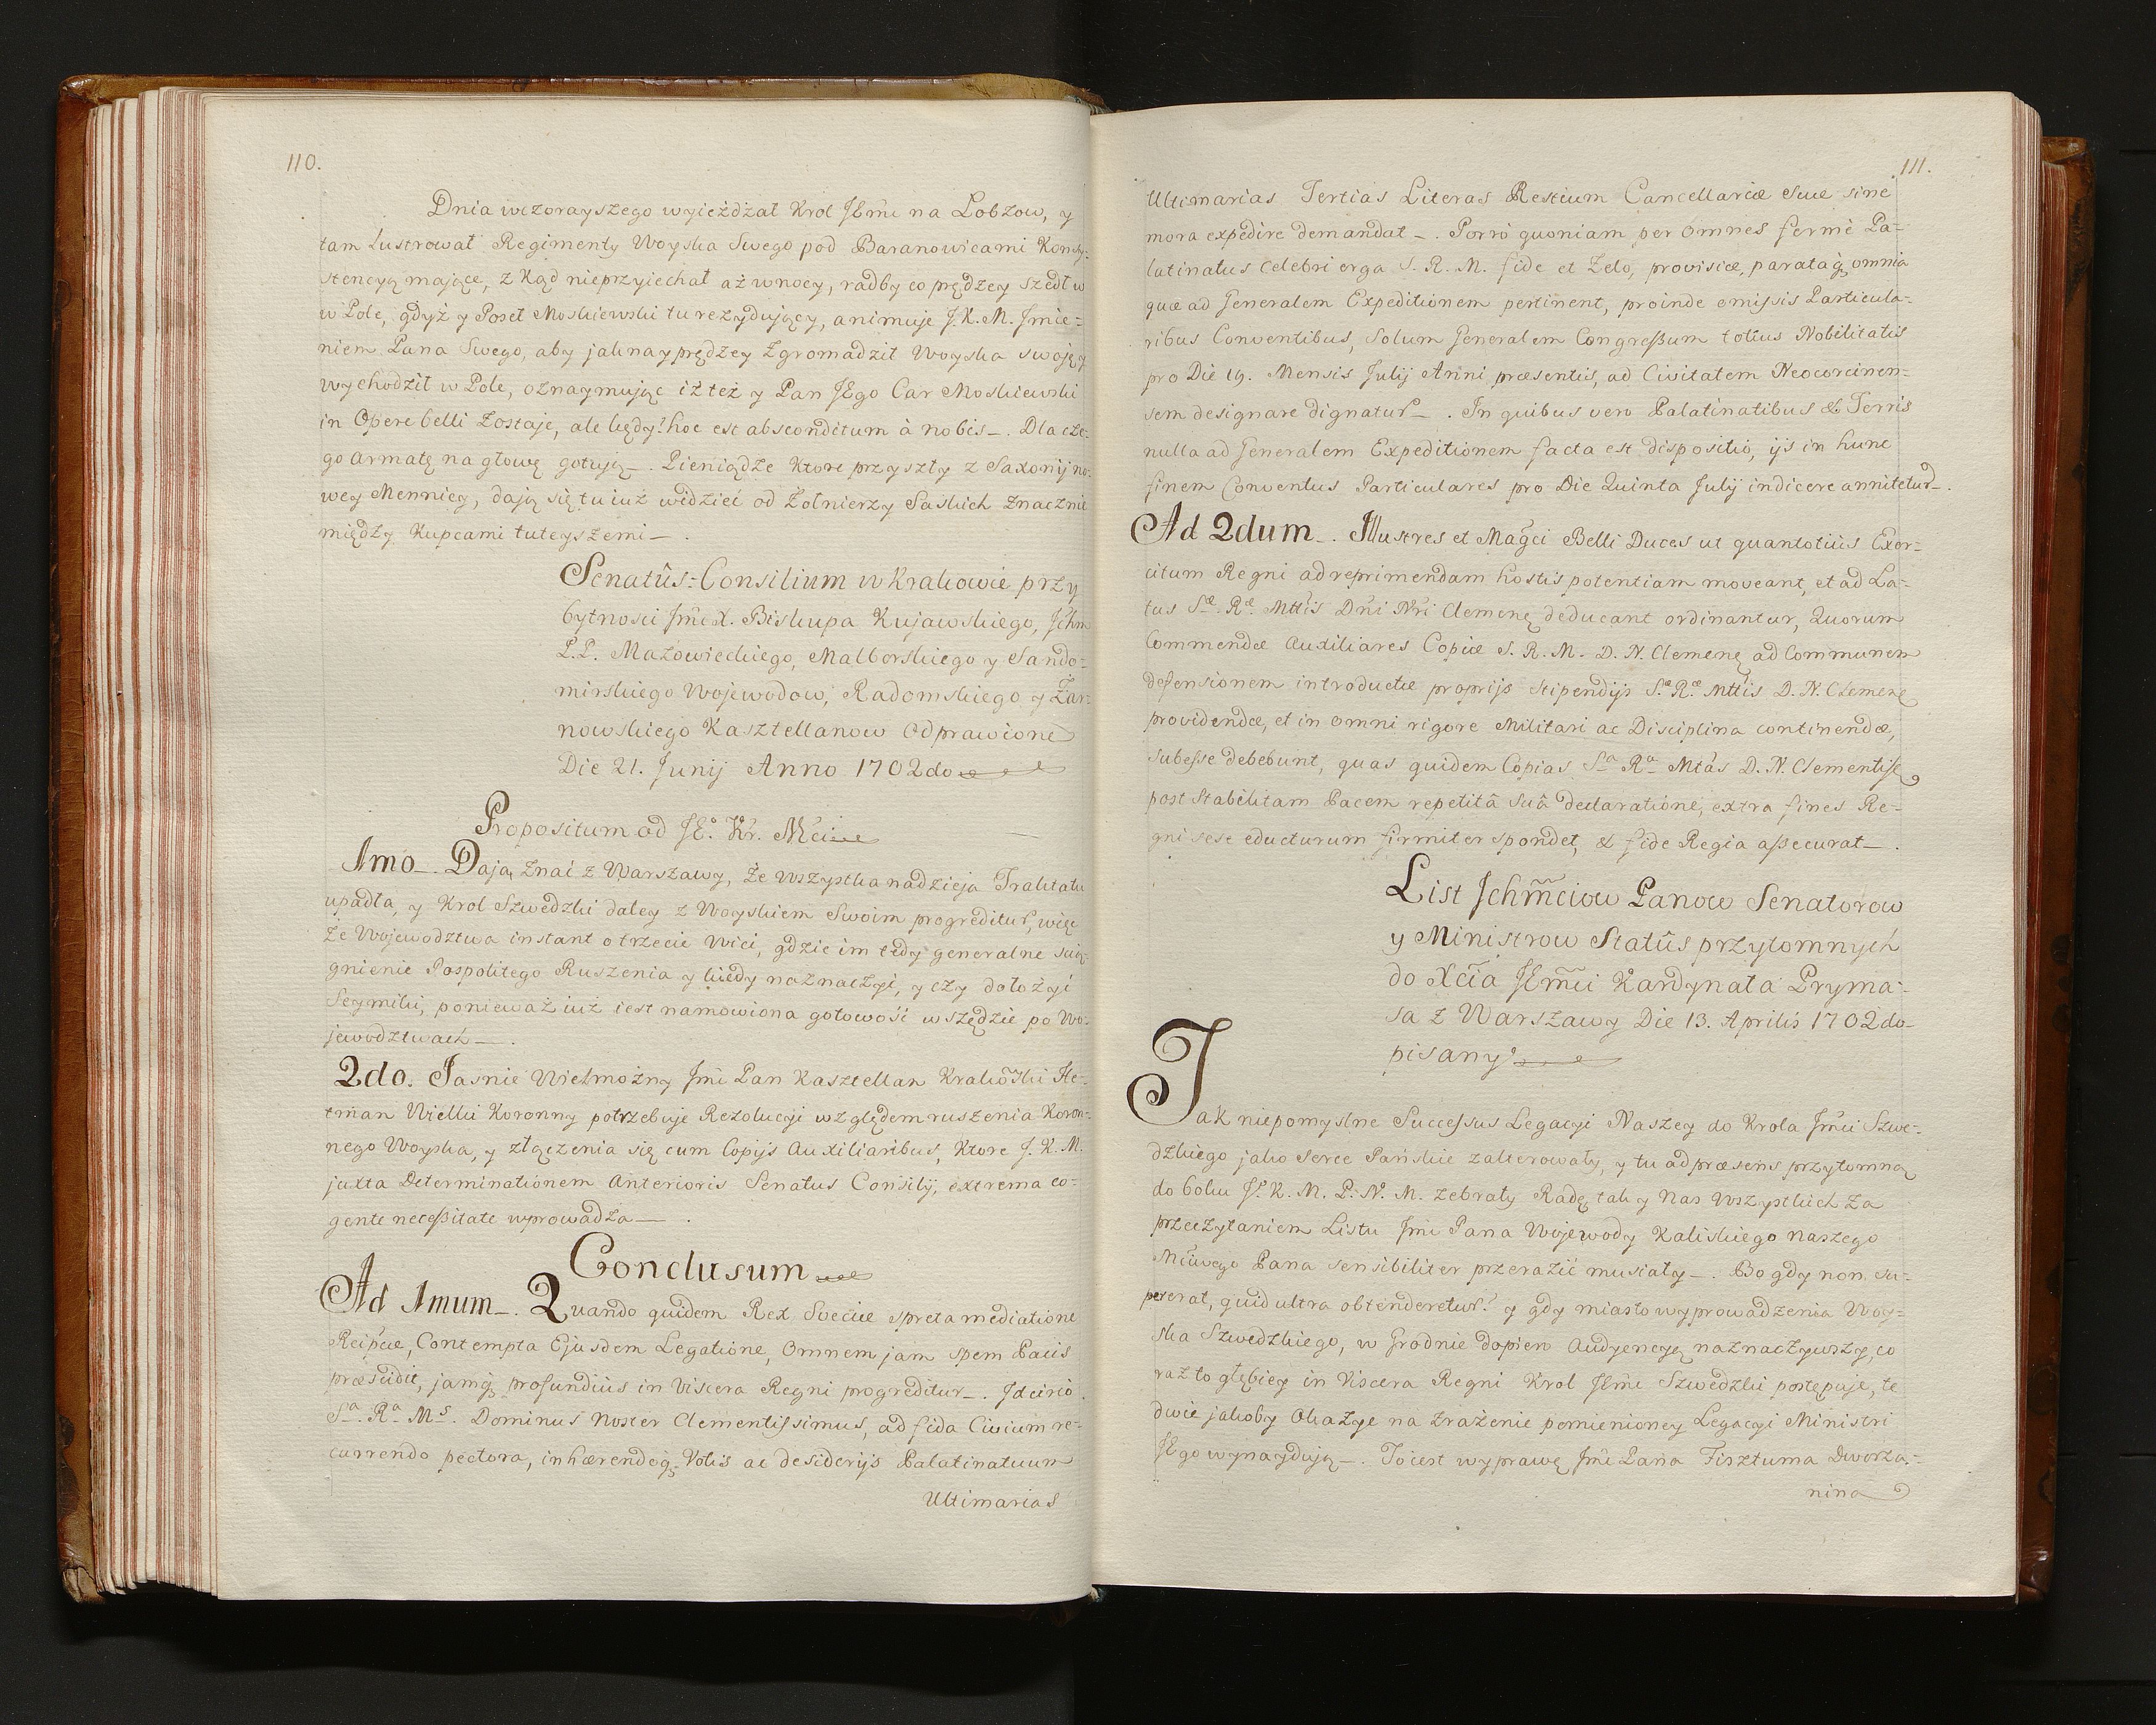 110.
Dnia wczorayszego wyieżdżał Krol JEmć na Lobzow, y
tam Lustrował Regimenty Woyska Swego pod Baranowicami Konsy-
stencyą maiące, z kąd nieprzyiechał aż w nocy, radby co prędzey szedł w
w Pole, gdyż y Poseł Moskiewski tu rezydujący, animuje J.K.M. Jmie=
niem Pana Swego, aby jaknayprędzey zgromadził Woyska swoje y
wychodził w Pole, oznaymując iż też y Pan JEgo Car Moskiewski
in Opere belli zostaje, ale kędy? hoc est absconditum à nobis_. Dla cze-
go armatę na głowę gotują_. Pieniądze ktore przyszły z Saxonij no-
wey Mennicy, dają się tu iuż widzieć od Żołnierzy Saskich znacznie
między Kupcami tuteyszemi_.
Senatûs=Consilium w Krakowie przy
bytnosci Jmći X. Biskupa Kujawskiego, Jchm
P.P. Mazowieckiego, Malborskiego y Sando=
mirskiego Wojewodow, Radomskiego y Żar-
nowskiego Kasztellanow Odprawione
Die 21. Junij Anno 1702do
Propositum od JEº. Kr. Mći
1mo_. Dają znać z Warszawy, że wszystka nadzieja Traktatu
upadła, y Krol Szwedzki daley z Woyskiem Swoim progreditur, więc
że Wojewodztwa instant o trzecie Wici, gdzie im tedy generalne scią-
gnienie Pospolitego Ruszenia y kiedy naznaczyć, y czy dołożyć
Seymiki, ponieważ iuż iest namowiona gotowość wszędzie po Wo-
jewodztwach_.
2do. Jasnie Wielmożny Jmć Pan Kasztellan Krakowski He-
tman Wielki Koronny potrzebuje Rezolucyi względem ruszenia Koron-
nego Woyska, y złączenia się cum Copijs Auxiliaribus, Ktore J.K.M.
juxta Determinationem Anterioris Senatus Consilij, extrema co-
gente neceßitate wprowadza_.
Conclusum
Ad 1mum_. Quando quidem Rex Sveciæ spreta mediatione
Reipcæ, Contempta Ejusdem Legatione, Omnem jam spem Pacis
præscidit, jamq profundiùs in Viscera Regni progreditur_. Jdcircò
Sª. Rª Ms. Dominus Noster Clementissimus, ad fida Civium re-
currendo pectora, inhærendoq Votis ac desiderijs Palatinatuum
Ultimarias
111.
Ultimarias Tertias Literas Restium Cancellariæ Suæ sine
mora expedire demandat_. Porrò quoniam per omnes fermè Pa-
latinatus celebri erga S.R.M. fide et Zelo, provisæ, parataq omnia
quæ ad Generalem Expeditionem pertinent, proinde omissis Particula-
ribus Conventibus, Solum Generalem Congreßum totius Nobilitatis
pro Die 19. Mensis Julij Anni præsentis, ad Civitatem Neocorcinen-
sem designare dignatur_. In quibus vero Palatinatibus & Terris
nulla ad Generalem Expeditionem facta est dispositio, ijs in hunc
finem Conventus Particulares pro Die Quinta Julij indicere annitetur_.
Ad 2dum_. Jllustres et Magci Belli Duces ut quantotiùs Exer-
citum Regni ad reprimendam hostis potentiam moveant, et ad La-
tus Sæ. Ræ. Mttis Dni Nri Clemenę deducant ordinantur, Quorum
Commendæ Auxiliares Copiæ S.R.M.D.N. Clemenę ad Communem
defensionem introductæ proprijs stipendijs Sæ Ræ. Mttis D.N. Clemenę
providendæ, et in omni rigore Militari ac Disciplina continendæ,
subeße debebunt, quas quidem Copias Sª Rª Mtás D.N. Clementiß
post Stabilitam Pacem repetitâ suâ declaratione, extra fines Re-
gni sese educturum firmiter spondet, & fide Regia aßecurat_.
List Jchmciow Panow Senatorow
y Ministrow Statûs przytomnych
do Xcia JEmci Kardynała Pryma-
sa z Warszawy Die 13. Aprilis 1702do
pisany
Jak niepomyslne Succeßus Legacyi Naszey do Krola Jmći Szwe-
dzkiego jako serce Pańskie zalterowały, y tu ad præsens przytomną
do boku Jº.K.M.P.N.M. zebrały Radę tak y Nas wszystkich za
przeczytaniem Listu Jmći Pana Wojewody Kaliskiego naszego
Mciwego Pana sensibiliter przerazić musiały_. Bo gdy non su-
pererat, quid ultra obtenderetur? y gdy miasto wyprowadzenia Woy-
ska Szwedzkiego, w Grodnie dopiero Audyencyę naznaczywszy, co
raz to głębiey in Viscera Regni Krol JEmć Szwedzki postępuje, te
dwie jakoby Okazye na zrażenie pomienioney Legacyi Ministri
JEgo wynaydują_. To iest wyprawę Jmć Pana Fisztuma Dworza-
nina